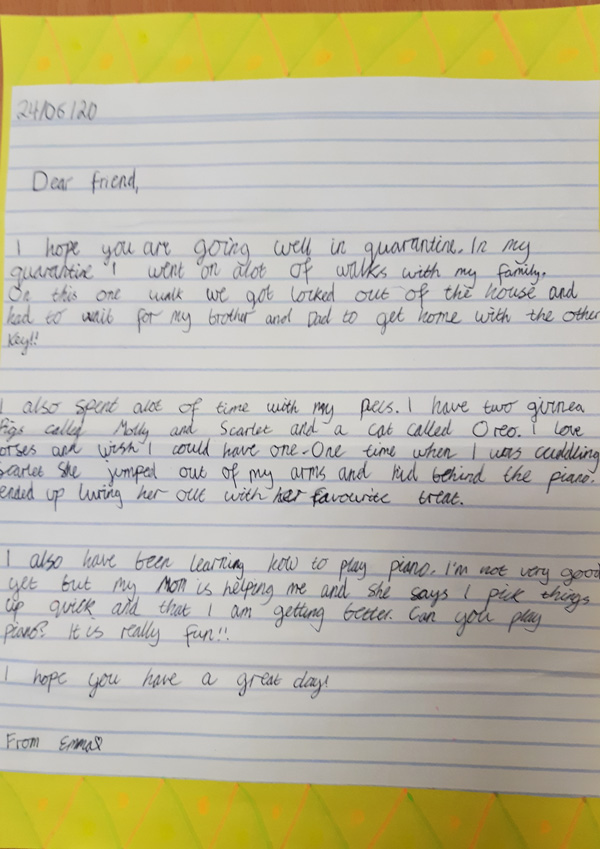 24/06/20
Dear friend,
I hope you are going well in quarantine. In my
quarantine I went on alot of walks with my family.
On this one walk we got locked out of the house and
had to wait for my brother and Dad to get home with the other
key!!
I also spent alot of time with my pets. I have two guinea
figs called Molly and Scarlet and a cat called Oreo. I love
orses and wish I could have one. One time when I was cuddling
scarlet she jumped out of my arms and hid behind the piano.
ended up luring her out with her favourite treat.
I also have been learning how to play piano. I'm not very good
yet but my Mom is helping me and she says I pick things
up quick and that I am getting better. Can you play
piano? It is really fun!!
I hope you have a great day!
From Emma♡